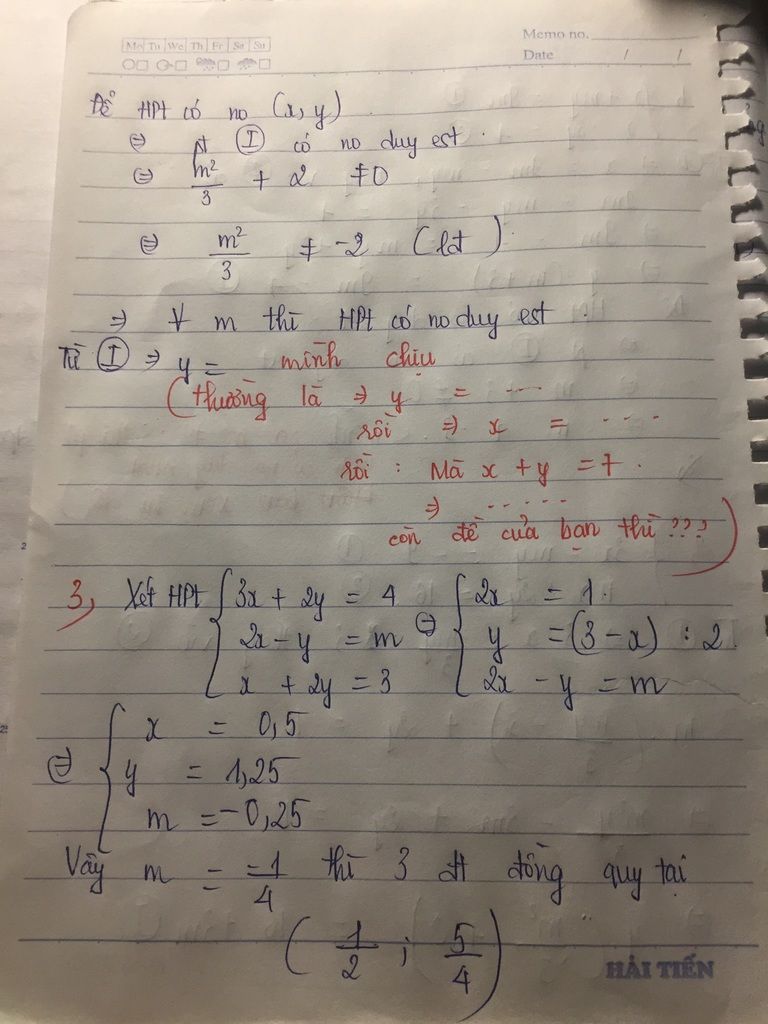 Mo Tu We Th Fr Sa Su
Memo no.
Date / /
Để HPt có no (x, y)
⇔ pt Ⓘ có no duy est.
⇔ m²/3 + 2 ≠ 0
⇔ m²/3 ≠ -2 (lđ)
⇒ ∀ m thì HPt có no duy est.
Từ Ⓘ ⇒ y = mình chịu
(thường là ⇒ y = ....
rồi ⇒ x = ....
rồi : Mà x + y = 7.
⇒ .....
còn đề của bạn thì ???)
3, Xét HPt { 3x + 2y = 4 ⇔ { 2x = 1.
2x - y = m y = (3 - x) : 2.
x + 2y = 3 2x - y = m
⇔ { x = 0,5
y = 1,25
m = -0,25
Vậy m = -1/4 thì 3 đt đồng quy tại
(1/2 ; 5/4)
HẢI TIẾN